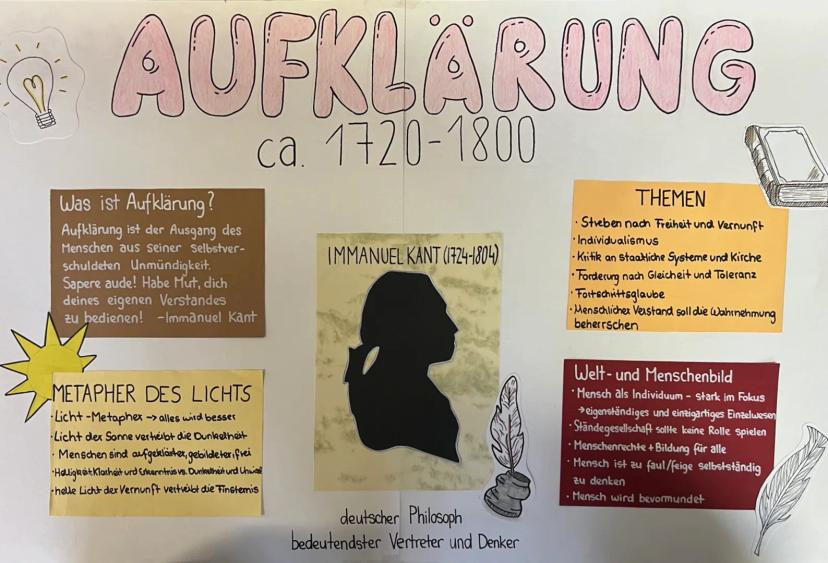 AUFKLÄRUNG
ca. 1720-1800
Was ist Aufklärung?
Aufklärung ist der Ausgang des
Menschen aus seiner selbstver-
schuldeten Unmündigkeit.
Sapere aude! Habe Mut, dich
deines eigenen Verstandes
zu bedienen! -Immanuel Kant
METAPHER DES LICHTS
·Licht-Metapher → alles wird besser
·Licht der Sonne vertreibt die Dunkelheit
· Menschen sind aufgeklärter, gebildeter, frei
·Helligkeit, Klarheit und Erkenntnis vs. Dunkelheit und
·helle Licht der Vernunft vertreibt die Finsternis
IMMANUEL KANT (1724-1804)
deutscher Philosoph
bedeutendster Vertreter und Denker
THEMEN
· Streben nach Freiheit und Vernunft
· Individualismus
· Kritik an staatliche Systeme und Kirche
· Forderung nach Gleicheit und Toleranz
· Fortschrittsglaube
· Menschlicher Verstand soll die Wahrnehmung
beherrschen
Welt- und Menschenbild
· Mensch als Individuum - stark im Fokus
→ eigenständiges und einzigartiges Einzelwesen
· Ständegesellschaft sollte keine Rolle spielen
· Menschenrechte + Bildung für alle
· Mensch ist zu faul/feige selbstständig
zu denken
· Mensch wird bevormundet